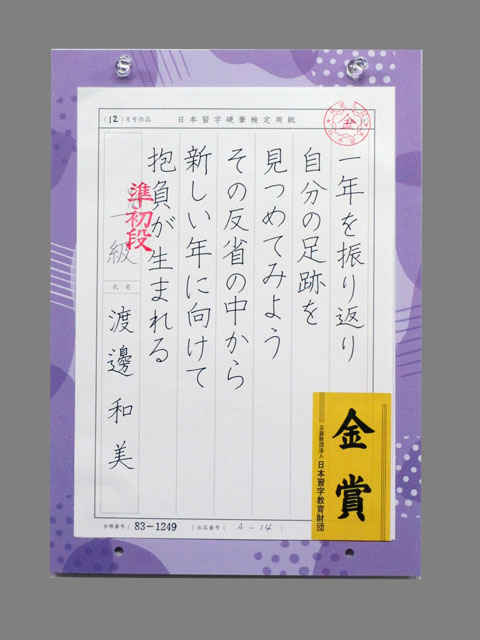 (12)月号作品 日本習字硬筆検定用紙
金
一年を振り返り
自分の足跡を
見つめてみよう
その反省の中から
新しい年に向けて
抱負が生まれる
準初段
級
氏名
渡邊和美
金賞
公益財団法人 日本習字教育財団
(83-1249)出品番号(A-14)